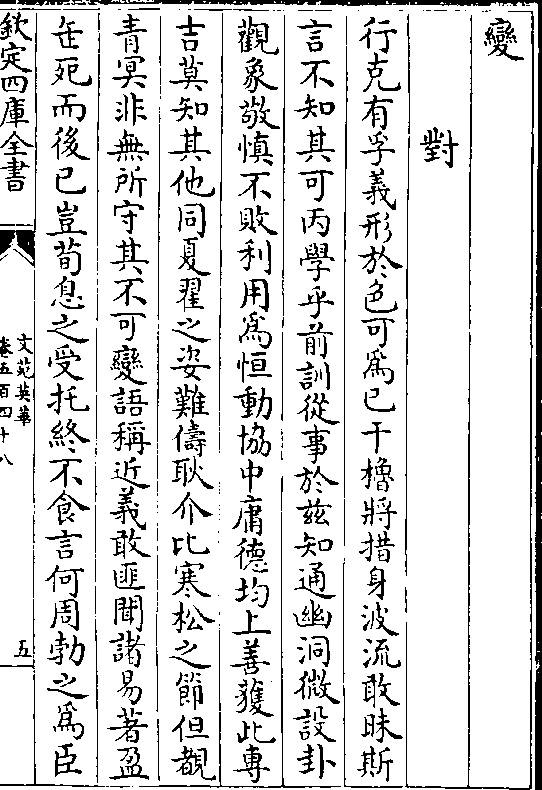 變
對
行克有孚義形於色可爲已干櫓將措身波流敢昧斯
言不知其可丙學乎前訓從事於兹知通幽洞微設卦
觀象敬慎不敗利用爲恒動協中庸德均上善獲此專
吉莫知其他同夏翟之姿難儔耿介比寒松之節但覩
青冥非無所守其不可變語稱近義敢匪聞諸易著盈
缶死而後已豈荀息之受托終不食言何周勃之爲臣
欽定四庫全書
文苑英華
卷五百四十八
五